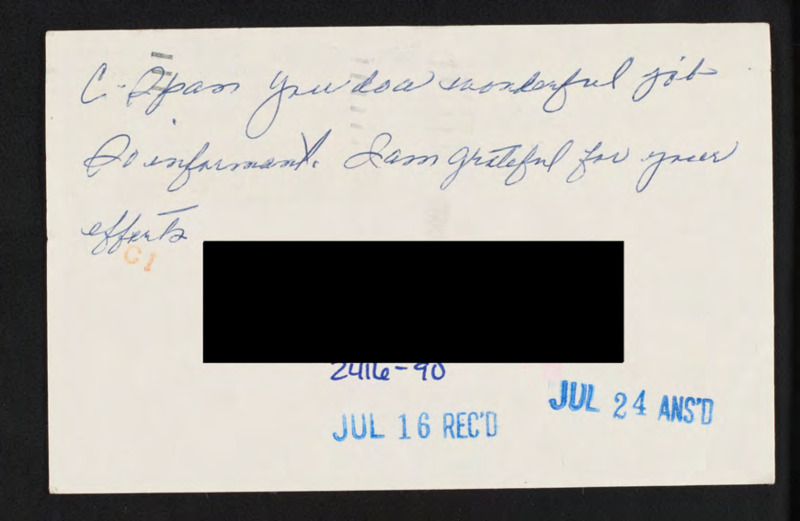 C-Span you do a wonderful job
So informant. I am grateful for your
efforts
C1
2416-90
JUL 16 REC'D
JUL 24 ANS'D